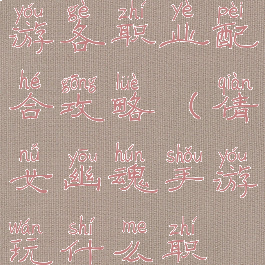 yóu gè zhí yè pèi
游各职业配
hé gōng lüè qiàn
合攻略（倩
nǚ yōu hún shǒu yóu
女幽魂手游
wán shí me zhí
玩什么职